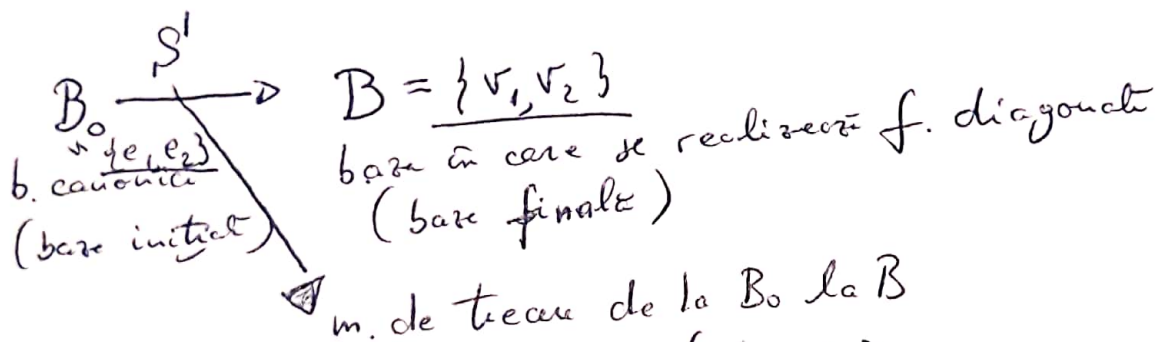 S'
B₀ → B = {v₁, v₂}
" {e₁, e₂}
b. canonică
(baza inițială)
baza în care se realizează f. diagonală
(baza finală)
m. de trecere de la B₀ la B